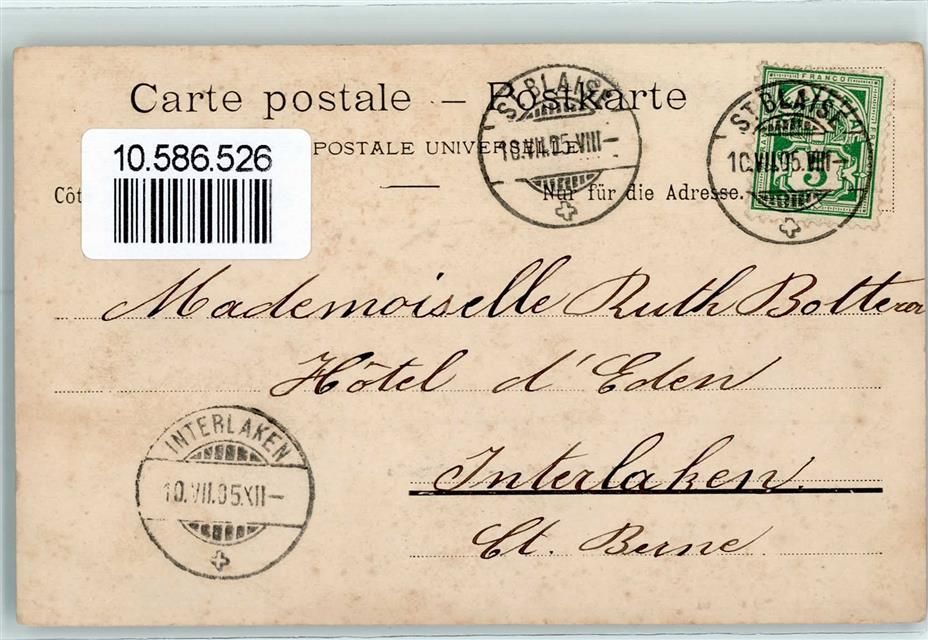 Carte postale – Postkarte
10.586.526
POSTALE UNIVERSELLE
Nur für die Adresse.
ST. BLAISE
10.VII.05.VIII–
FRANCO
ST. BLAISE
10.VII.05.VIII–
5
Mademoiselle Ruth Botteron
Hôtel d'Eden
Interlaken.
Ct. Berne.
INTERLAKEN
10.VII.05.XII–